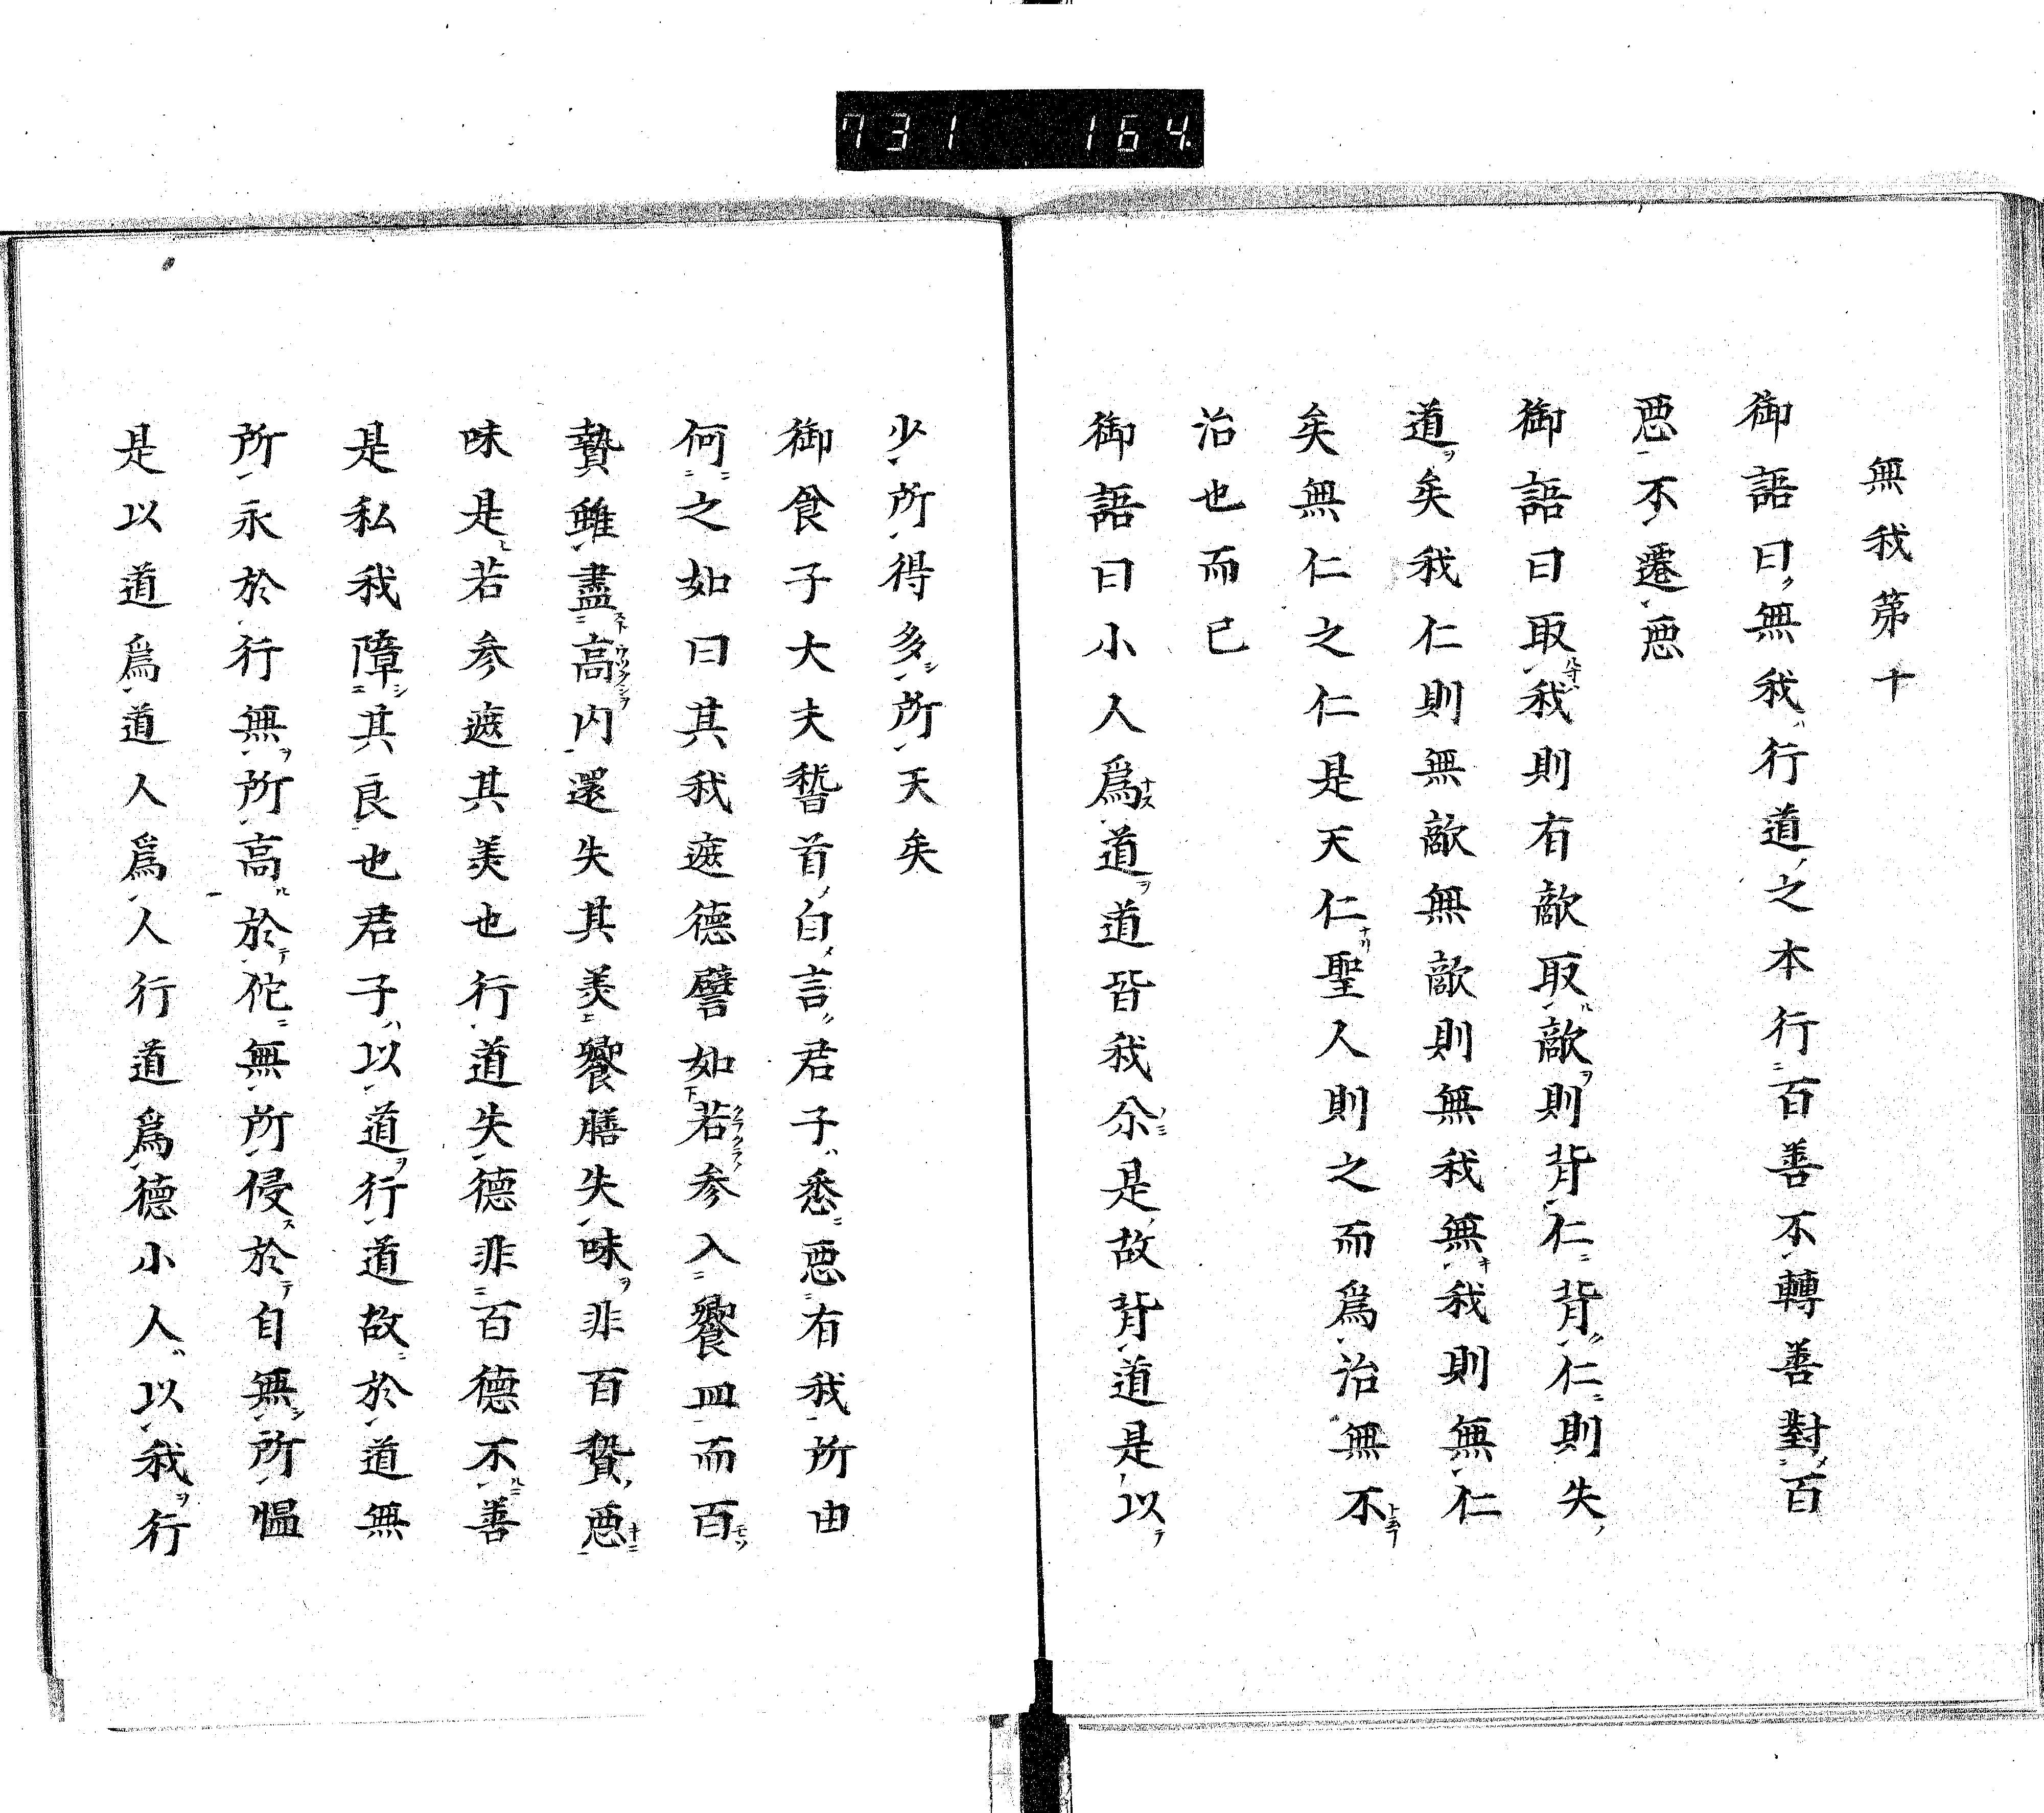 731 164
無我第十
御語曰無我行道之本行百善不轉善對百
惡不遷惡
御語曰取我則有敵取敵則背仁背仁則失
道矣我仁則無敵無敵則無我無我則無仁
矣無仁之仁是天仁聖人則之而爲治無不
治也而已
御語曰小人爲道道皆我尒是故背道是以
少所得多所天矣
御食子大夫稽首白言君子悉惡有我所由
何之如曰其我遮德譬如若參入饗皿而百
贄雖盡高内還失其美饗膳失味非百贄惡
味是若参遮其美也行道失德非百德不善
是私我障其良也君子以道行道故於道無
所永於行無所高於佗無所侵於自無所慍
是以道爲道人爲人行道爲德小人以我行